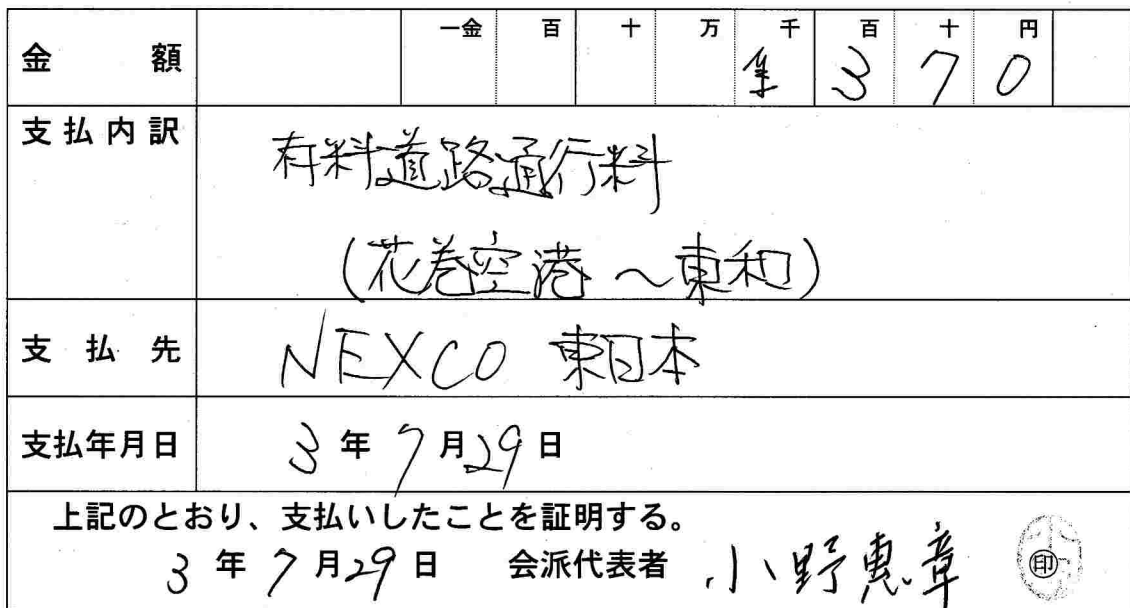 金額 一金 百 十 万 千 百 十 円
3 7 0
支払内訳 有料道路通行料
(花巻空港 ~ 東和)
支払先 NEXCO 東日本
支払年月日 3 年 7 月 29 日
上記のとおり、支払いしたことを証明する。
3 年 7 月 29 日 会派代表者 小野惠章 印